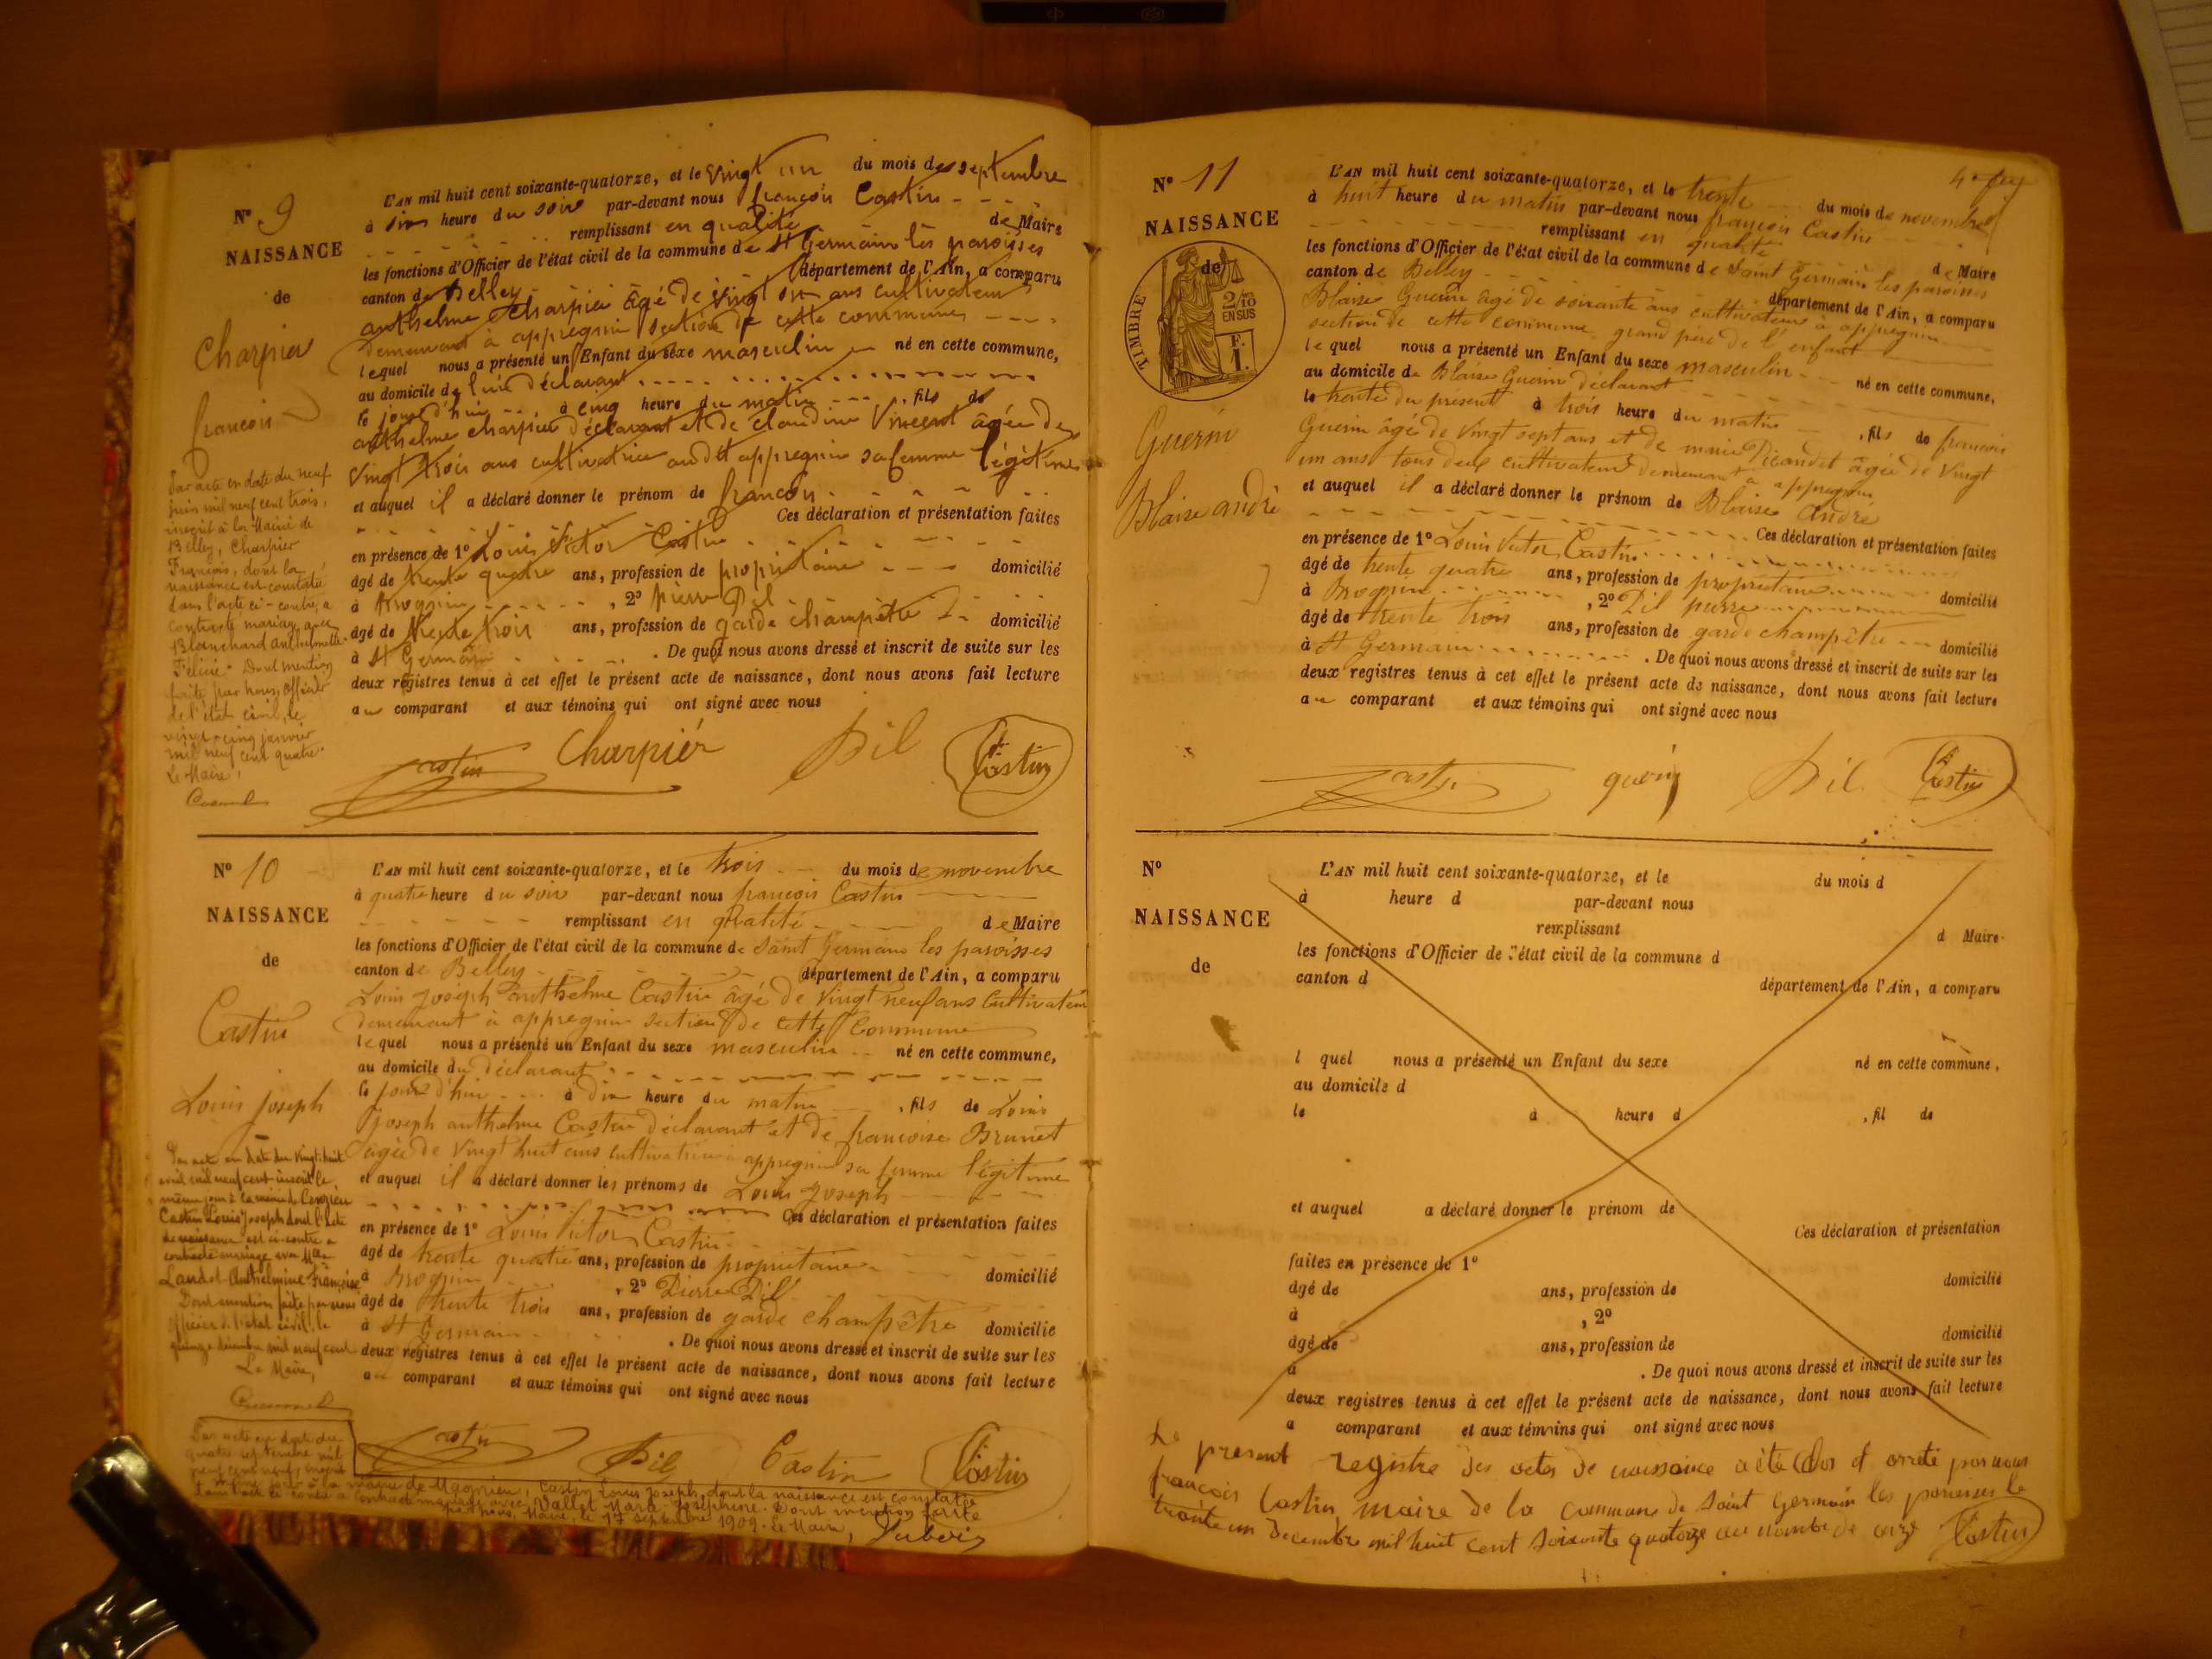 N° 9
NAISSANCE
de
Charpier
françois
Par acte en date du neuf
juin mil neuf cent trois,
inscrit à la Mairie de
Belley, Charpier
François, dont la
naissance est constatée
dans l'acte ci-contre, a
contracté mariage avec
Blanchard Anthelmette
Félicie. Dont mention
faite par nous, officier
de l'état civil, le
vingt-cinq janvier
mil neuf cent quatre.
Le Maire,
L'AN mil huit cent soixante-quatorze, et le vingt un du mois de septembre
à six heure du soir par-devant nous françois Castin
remplissant en qualité de Maire
les fonctions d'Officier de l'état civil de la commune de St Germain les paroisses
canton de Belley département de l'Ain, a comparu
anthelme Charpier âgé de vingt six ans cultivateur
demeurant à appregnin section de cette commune
lequel nous a présenté un Enfant du sexe masculin né en cette commune,
au domicile de lui déclarant
le jour d'hui à cinq heure du matin, fils de
anthelme charpier déclarant et de claudine Vincent âgée de
vingt trois ans cultivatrice audit appregnin sa femme légitime
et auquel il a déclaré donner le prénom de françois
Ces déclaration et présentation faites
en présence de 1° Louis Victor Castin
âgé de trente quatre ans, profession de propriétaire domicilié
à Brognin, 2° pierre Pil
âgé de trente trois ans, profession de garde champêtre domicilié
à St Germain. De quoi nous avons dressé et inscrit de suite sur les
deux registres tenus à cet effet le présent acte de naissance, dont nous avons fait lecture
au comparant et aux témoins qui ont signé avec nous
Castin Charpier Pil Castin
N° 10
NAISSANCE
de
Castin
Louis joseph
Par acte en date du vingt-huit
avril mil neuf cent inscrit le
même jour à la mairie de
Castin Louis Joseph dont l'acte
de naissance est ci-contre a
contracté mariage avec Mlle
Landet Anthelmine Françoise
Dont mention faite par nous
officier de l'état civil, le
quinze décembre mil neuf cent
Le Maire,
L'AN mil huit cent soixante-quatorze, et le trois du mois de novembre
à quatre heure du soir par-devant nous françois Castin
remplissant en qualité de Maire
les fonctions d'Officier de l'état civil de la commune de Saint Germain les paroisses
canton de Belley département de l'Ain, a comparu
Louis joseph anthelme Castin âgé de vingt neuf ans Cultivateur
demeurant à appregnin section de cette Commune
lequel nous a présenté un Enfant du sexe masculin né en cette commune,
au domicile du déclarant
le jour d'hui à dix heure du matin, fils de Louis
joseph anthelme Castin déclarant et de françoise Brunet
âgée de vingt huit ans cultivatrice à appregnin sa femme légitime
et auquel il a déclaré donner les prénoms de Louis Joseph
Ces déclaration et présentation faites
en présence de 1° Louis Victor Castin
âgé de trente quatre ans, profession de propriétaire domicilié
à Brognin, 2° Pierre Pil
âgé de trente trois ans, profession de garde champêtre domicilié
à St Germain. De quoi nous avons dressé et inscrit de suite sur les
deux registres tenus à cet effet le présent acte de naissance, dont nous avons fait lecture
au comparant et aux témoins qui ont signé avec nous
Castin Pil Castin Castin
Par acte en date du
quatre septembre mil
neuf cent neuf, inscrit
le même jour à la mairie de Magnieu, Castin Louis Joseph, dont la naissance est constatée
dans l'acte ci-contre a contracté mariage avec Vallet Marie Joséphine. Dont mention faite
par nous, Maire, le 17 septembre 1909. Le Maire,
Dubois
N° 11
NAISSANCE
de
TIMBRE
2/10 EN SUS
F. 1.
Guerin
Blaise andré
L'AN mil huit cent soixante-quatorze, et le trente du mois de novembre
à huit heure du matin par-devant nous françois Castin
remplissant en qualité de Maire
les fonctions d'Officier de l'état civil de la commune de Saint Germain les paroisses
canton de Belley département de l'Ain, a comparu
Blaise Guerin âgé de soixante ans cultivateur à appregnin
section de cette commune grand père de l'enfant
lequel nous a présenté un Enfant du sexe masculin né en cette commune,
au domicile de Blaise Guerin déclarant
le trente du présent à trois heure du matin, fils de françois
Guerin âgé de vingt sept ans et de marie Picandet âgée de vingt
un ans tous deux cultivateurs demeurant à appregnin
et auquel il a déclaré donner le prénom de Blaise André
Ces déclaration et présentation faites
en présence de 1° Louis Victor Castin
âgé de trente quatre ans, profession de propriétaire domicilié
à Brognin, 2° Pil pierre
âgé de trente trois ans, profession de garde champêtre domicilié
à St Germain. De quoi nous avons dressé et inscrit de suite sur les
deux registres tenus à cet effet le présent acte de naissance, dont nous avons fait lecture
au comparant et aux témoins qui ont signé avec nous
Castin guerin Pil Castin
N°
NAISSANCE
de
L'AN mil huit cent soixante-quatorze, et le du mois d
à heure d par-devant nous
remplissant d Maire
les fonctions d'Officier de l'état civil de la commune d
canton d département de l'Ain, a comparu
l quel nous a présenté un Enfant du sexe né en cette commune,
au domicile d
le à heure d, fil de
et auquel a déclaré donner le prénom de
Ces déclaration et présentation
faites en présence de 1°
âgé de ans, profession de domicilié
à, 2°
âgé de ans, profession de domicilié
à. De quoi nous avons dressé et inscrit de suite sur les
deux registres tenus à cet effet le présent acte de naissance, dont nous avons fait lecture
a comparant et aux témoins qui ont signé avec nous
Le présent registre des actes de naissance a été clos et arrêté par nous
françois Castin, maire de la commune de Saint Germain les paroisses le
trente un decembre mil huit cent soixante quatorze au nombre de onze Castin